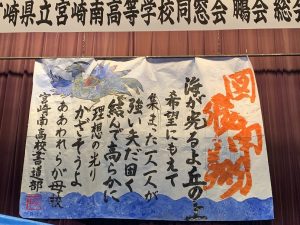 崎県立宮崎南高等学校同窓会 鵬会 総
圖南
海が光るよ丘の上
希望にもえて
集まった一人一人が
強い矢だ固く
結んで高らかに
理想の光り
かざそうよ
ああわれらが母校
宮崎南高校書道部